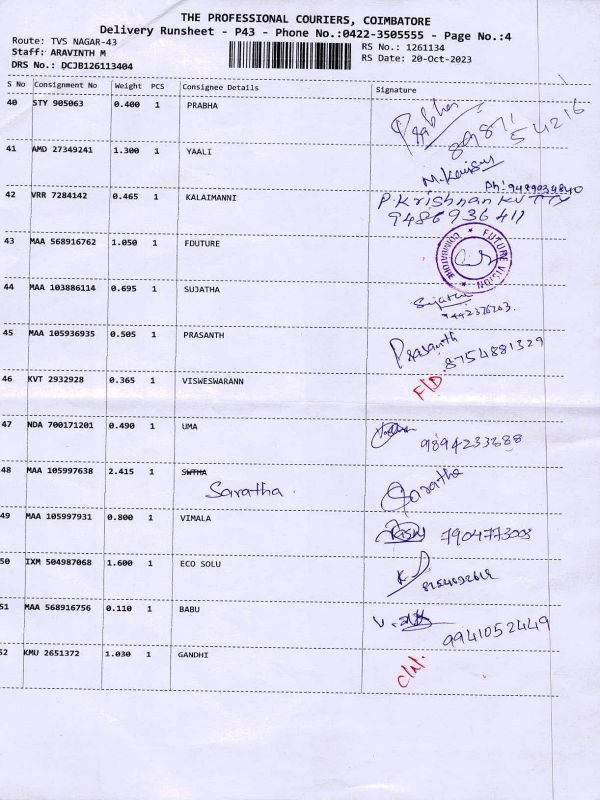 THE PROFESSIONAL COURIERS, COIMBATORE
Delivery Runsheet - P43 - Phone No.:0422-3505555 - Page No.:4
Route: TVS NAGAR-43 RS No.: 1261134
Staff: ARAVINTH M RS Date: 20-Oct-2023
DRS No.: DCJB126113404
S No Consignment No Weight PCS Consignee Details Signature
40 STY 905063 0.400 1 PRABHA Prabha
89871 54216
41 AMD 27349241 1.300 1 YAALI
Ph: 9489024840
42 VRR 7284142 0.465 1 KALAIMANNI P.Krishnan KVTTY
9486936411
43 MAA 568916762 1.050 1 FDUTURE FUTURE VISION COIMBATORE
44 MAA 103886114 0.695 1 SUJATHA Sujatha
9442376203.
45 MAA 105936935 0.505 1 PRASANTH Prasanth
8754881329
46 KVT 2932928 0.365 1 VISWESWARANN F/D
47 NDA 700171201 0.490 1 UMA 9894233688
48 MAA 105997638 2.415 1 SWTHA Saratha
Saratha.
49 MAA 105997931 0.800 1 VIMALA 7904773003
50 IXM 504987068 1.600 1 ECO SOLU
51 MAA 568916756 0.110 1 BABU
9941052449
52 KMU 2651372 1.030 1 GANDHI C/N.